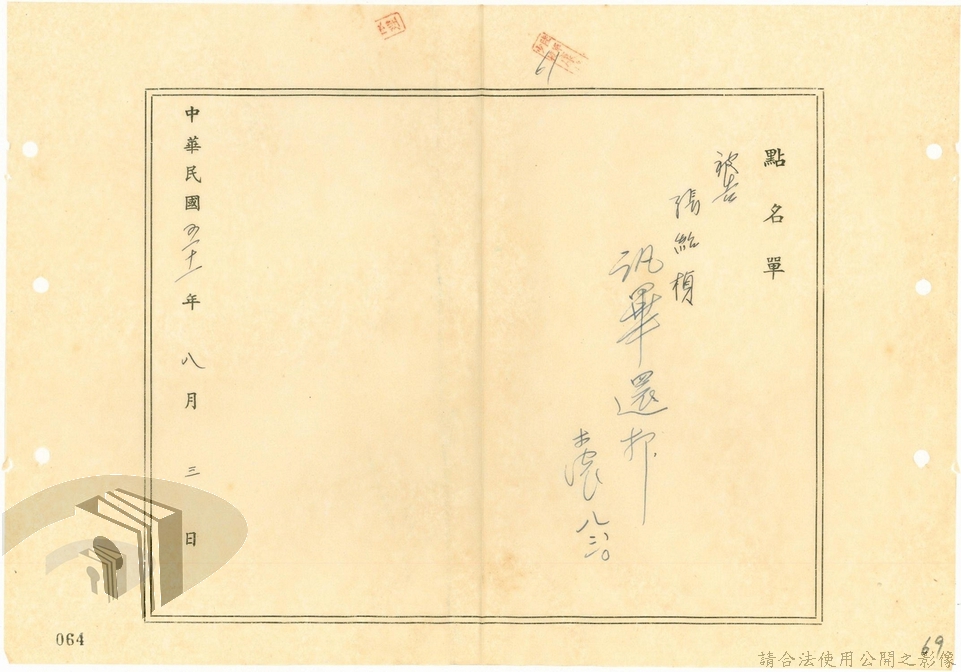 點名單
被告
張紹楨
訊畢還押
八、三〇
中華民國五十一年八月三日
61
064
69
請合法使用公開之影像